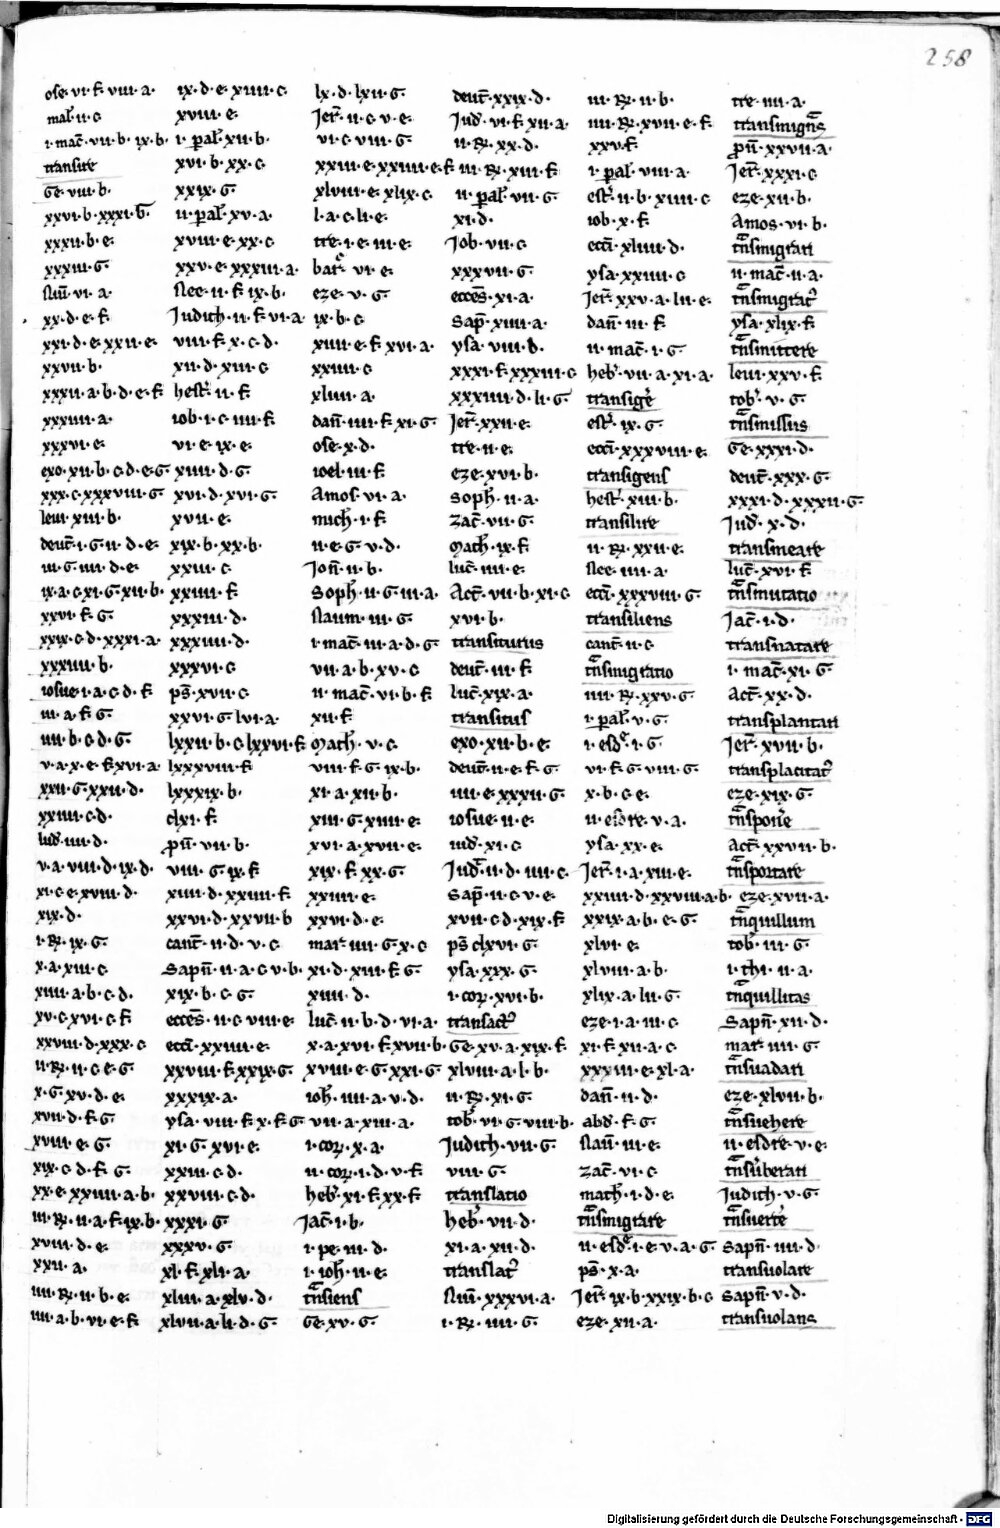 258
ose· vi· f· viii· a·
mal· ii· c
i· mac̄· vii· b· ix· b·
transire
Ge· viii· b·
xxvi· b· xxxi· G·
xxxii· b· e·
xxxiii· G
Nu̅· vi· a·
xx· d· e· f·
xxi· d· e· xxii· e·
xxvii· b·
xxxii· a· b· d· e· f
xxxiiii· a·
xxxvi· c·
exo· xii· b· c· d· e· G
xxx· c· xxxviii· G
leui· xiii· b·
deut̄· i· G· ii· d· e·
iii· G· iiii· d· e·
ix· a· c· xi· G· xii· b·
xxvi· f· G·
xxix· c· d· xxxi· a·
xxxiiii· b·
iosue· i· a· c· d· f
iii· a· f· G·
iiii· b· c· d· G·
v· a· x· e· f· xvi· a·
xxii· G· xxii· d·
xxiiii· c· d·
iud̄· iiii· d·
v· a· viii· d· ix· d·
xi· c· e· xviii· d·
xix· d·
i· R̄· ix· G·
x· a· xiii· c
xiiii· a· b· c· d·
xv· c· xvi· c· f
xxviii· d· xxx· c
ii· R̄· ii· c· e· G
x· G· xv· d· e·
xvii· d· f· G
xviii· e· G
xix· c· d· f· G·
xx· e· xxiiii· a· b·
iii· R̄· ii· a· f· ix· b·
xviii· d· e·
xxii· a·
iiii· R̄· ii· b· e·
iiii· a· b· vi· e· f
ix· d· e· xiiii· c
xviii· e·
i· pal̄· xii· b·
xvi· b· xx· c
xxix· G·
ii· pal̄· xv· a·
xviii· e· xx· c·
xxv· e· xxxiii· a·
Nee· ii· f· ix· b·
Judith· ii· f· vi· a
viii· f· x· c· d·
xii· d· xiii· c
hest̄· ii· f
iob· i· c· iiii· f
vi· e· ix· e·
xiiii· d· G·
xvi· d· xvi· G·
xvii· e·
xix· b· xx· b·
xxiii· c
xxiiii· f
xxxiii· d·
xxxiiii· d·
xxxvi· c
ps̄· xvii· c
xxvi· G· lvi· a·
lxxii· b· c· lxxvi· f
lxxxviii· f
lxxxix· b·
clxi· f
pu̅· vii· b·
viii· G· ix· f
xiiii· d· xxiiii· f
xxvi· d· xxvii· b
cant̄· ii· d· v· c
Sapn̄· ii· a· c· v· b·
xix· b· c· G·
eccēs· ii· c· viii· e·
ecci̅· xxiiii· e·
xxviii· f· xxix· G
xxxix· a·
ysa· viii· f· x· f· G
xi· G· xvi· e·
xxiii· c· d·
xxviii· c· d·
xxxi· G
xxxv· G
xl· f· xli· a·
xliii· a· xlv· d·
xlvii· a· li· d· G
lx· d· lxii· G
Jer̄· ii· c· v· e·
vi· c· viii· G·
xxiii· e· xxiiii· e· f
xlviii· e· xlix· c
l· a· c· li· e·
tre· i· e· iii· e·
bar̄· vi· e·
eze· v· G
ix· b· c
xiiii· e· f· xvi· a·
xxiiii· c
xliiii· a·
dan̄· iiii· f· xi· G
ose· x· d·
ioel· iii· f
Amos· vi· a·
mich̄· i· f
ii· e· G· v· d·
Jon̄· ii· b·
Soph̄· ii· G· iii· a·
Naum· iii· G
i· mac̄· iii· a· d· G
vii· a· b· xv· c
ii· mac̄· vi· b· f
xii· f
Math̄· v· c·
viii· f· G· ix· b·
xi· a· xii· b·
xiii· G· xiiii· e·
xvi· a· xvii· e·
xix· f· xx· G
xxiiii· e·
xxvi· d· e·
mar̄· iiii· G· x· c
xi· d· xiii· f· G
xiiii· d·
luc̄· ii· b· d· vi· a·
x· a· xvi· f· xvii· b·
xviii· e· G· xxi· G
ioh̄· iiii· a· v· d·
vii· a· xiii· a·
i· cor̄· x· a·
ii· cor̄· i· d· v· f
heb̄· xi· f· xx· f
Jac̄· i· b·
i· pe· iii· d·
i· ioh̄· ii· e·
tn̄siens
Ge· xv· G
deut̄· xxix· d·
Jud̄· vi· f· xii· a·
ii· R̄· xx· d·
iii· R̄· xiii· f
ii· pal̄· vii· G
xi· d·
Job· vii· c
xxxvii· G
eccēs· xi· a·
Sap̄· xiiii· a·
ysa· viii· d·
xxxi· f· xxxiii· c
xxxiiii· d· li· G
Jer̄· xxii· e·
tre· ii· e·
eze· xvi· b·
Soph̄· ii· a·
Zac̄· vii· G
Mach̄· ix· f
luc̄· iiii· e·
Act̄· vii· b· xi· c
xvi· b·
transiturus
deut̄· iii· f
luc̄· xix· a·
transitus
exo· xii· b· e·
deut̄· ii· e· f· G
iiii· e· xxxii· G
iosue· ii· e·
iud̄· xi· c
Jud̄· ii· d· iiii· c
Sap̄· ii· c· v· e·
xvii· c· d· xix· f
ps̄· clxvi· G
ysa· xxx· G
i· cor̄· xvi· b·
transact̾
Ge· xv· a· xix· f
xlviii· a· l· b·
ii· R̄· xi· G
tob̄· vi· G· viii· b·
Judith· vii· G
viii· G
translatio
heb̄· vii· d·
xi· a· xii· d·
translat̾
Nu̅· xxxvi· a·
i· R̄· iiii· G
iii· R̄· ii· b·
iiii· R̄· xvii· e· f
xxv· f
i· pal̄· viii· a·
est̄· ii· b· xiiii· c
iob· x· f
ecci̅· xliiii· d·
ysa· xxiiii· c
Jer̄· xxv· a· lii· e·
dan̄· iii· f
ii· mac̄· i· G
heb̄· vii· a· xi· a·
transige̅
est̄· ix· G
ecci̅· xxxviii· e·
transigens
hest̄· xiii· b·
transilire
ii· R̄· xxii· e·
Nee· iiii· a·
ecci̅· xxxviii· G
transiliens
cant̄· ii· c
tn̄smigratio
iiii· R̄· xxv· G
i· pal̄· v· G
i· esd̄· i· G
vi· f· G· viii· G
x· b· c· e·
ii· esdre· v· a·
ysa· xx· e·
Jer̄· i· a· xiii· e·
xxiiii· d· xxviii· a· b·
xxix· a· b· e· G
xlvi· e·
xlviii· a· b·
xlix· a· lii· G
eze· i· a· iii· c
xi· f· xii· a· c
xxxiii· e· xl· a·
dan̄· ii· d·
abd̄· f· G
Nau̅· iii· e·
Zac̄· vi· c
math̄· i· d· e·
tn̄smigrare
ii· esd̄· i· e· v· a· G
ps̄· x· a·
Jer̄· ix· b· xxix· b· c
eze· xii· a·
tre· iiii· a·
transmigna̅s
pu̅· xxvii· a·
Jer̄· xxxi· c
eze· xii· b·
Amos· vi· b·
tn̄smigrari
ii· mac̄· ii· a·
tn̄smigrat̾
ysa· xlix· f
tn̄smittere
leui· xxv· f
tob̄· v· G
tn̄smissus
Ge· xxxi· d·
deut̄· xxx· G
xxxi· d· xxxii· G
Jud̄· x· d·
transmeare
luc̄· xvi· f
tn̄smutatio
Jac̄· i· d·
transnatare
i· mac̄· xi· G
Act̄· xx· d·
transplantari
Jer̄· xvii· b·
transplatat̾
eze· xix· G
tn̄spone̅
Act̄· xxvii· b·
tn̄sportare
eze· xvii· a·
tn̄quillum
tob̄· iii· G
i· thi· ii· a·
tn̄quillitas
Sapn̄· xii· d·
mat̄· iiii· G
tn̄suadari
eze· xlvii· b·
tn̄suehere
ii· esdre· v· e·
tn̄suberari
Judith· v· G
tn̄suerte̅
Sapn̄· iiii· d·
transuolare
Sapn̄· v· d·
transuolans
Digitalisierung gefördert durch die Deutsche Forschungsgemeinschaft - DFG